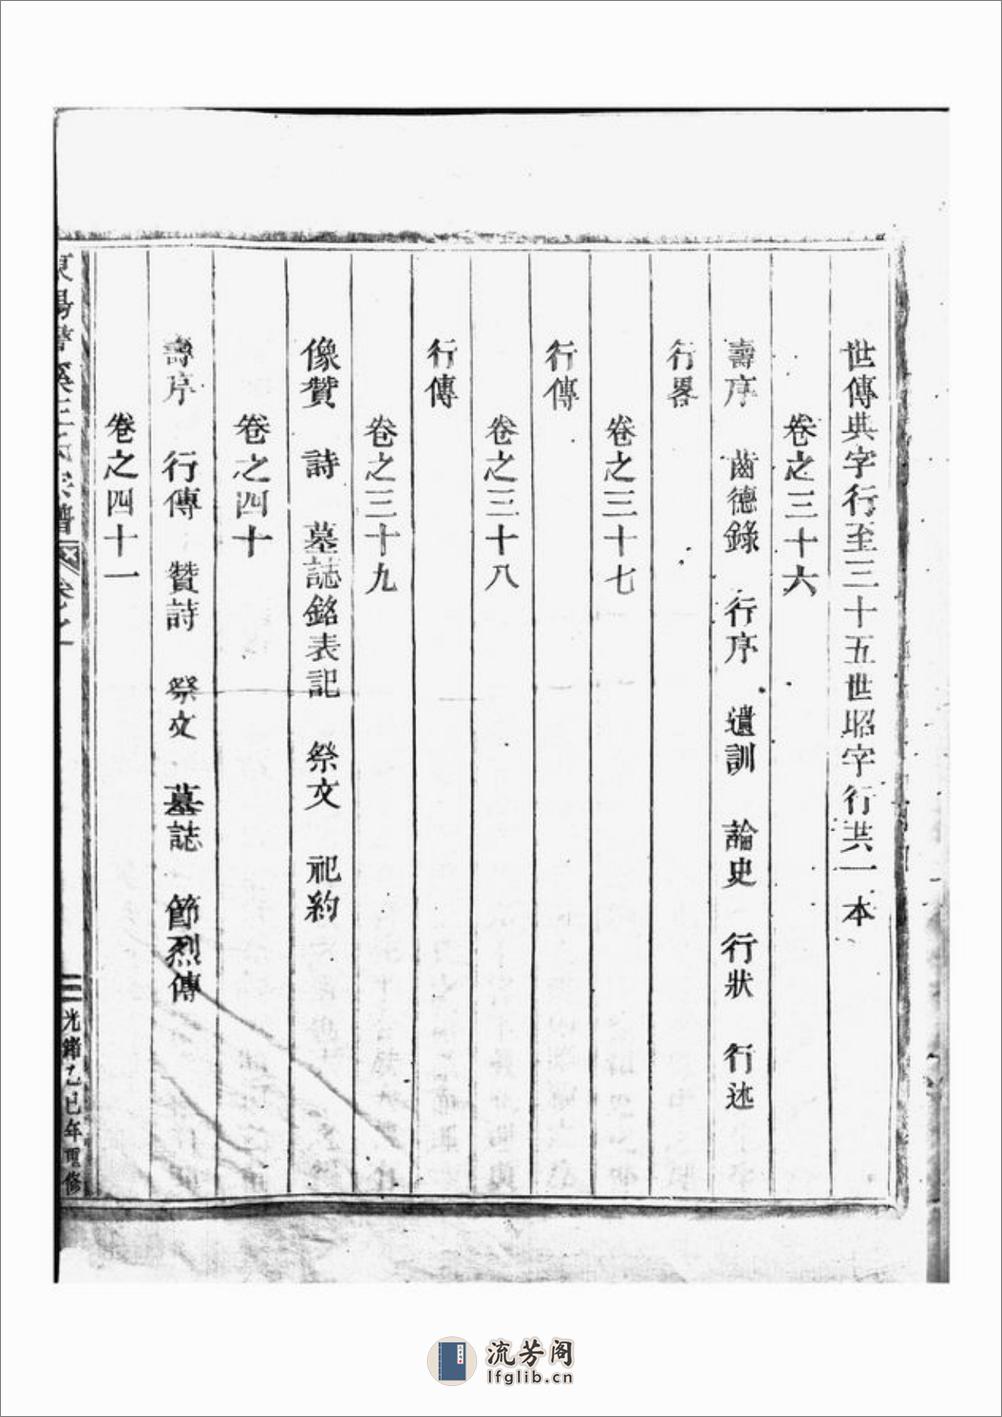 世傳典字行至三十五世昭字行共一本
卷之三十六
壽序 齒德錄 行序 遺訓 論史 行狀 行述
行畧
卷之三十七
行傳
卷之三十八
行傳
卷之三十九
像贊 詩 墓誌銘表記 祭文 祀約
卷之四十
壽序 行傳 贊詩 祭文 墓誌 節烈傳
卷之四十一
東陽 溪王氏宗譜 卷之一 二 光緒乙巳年重修
流芳阁
lfglib.cn